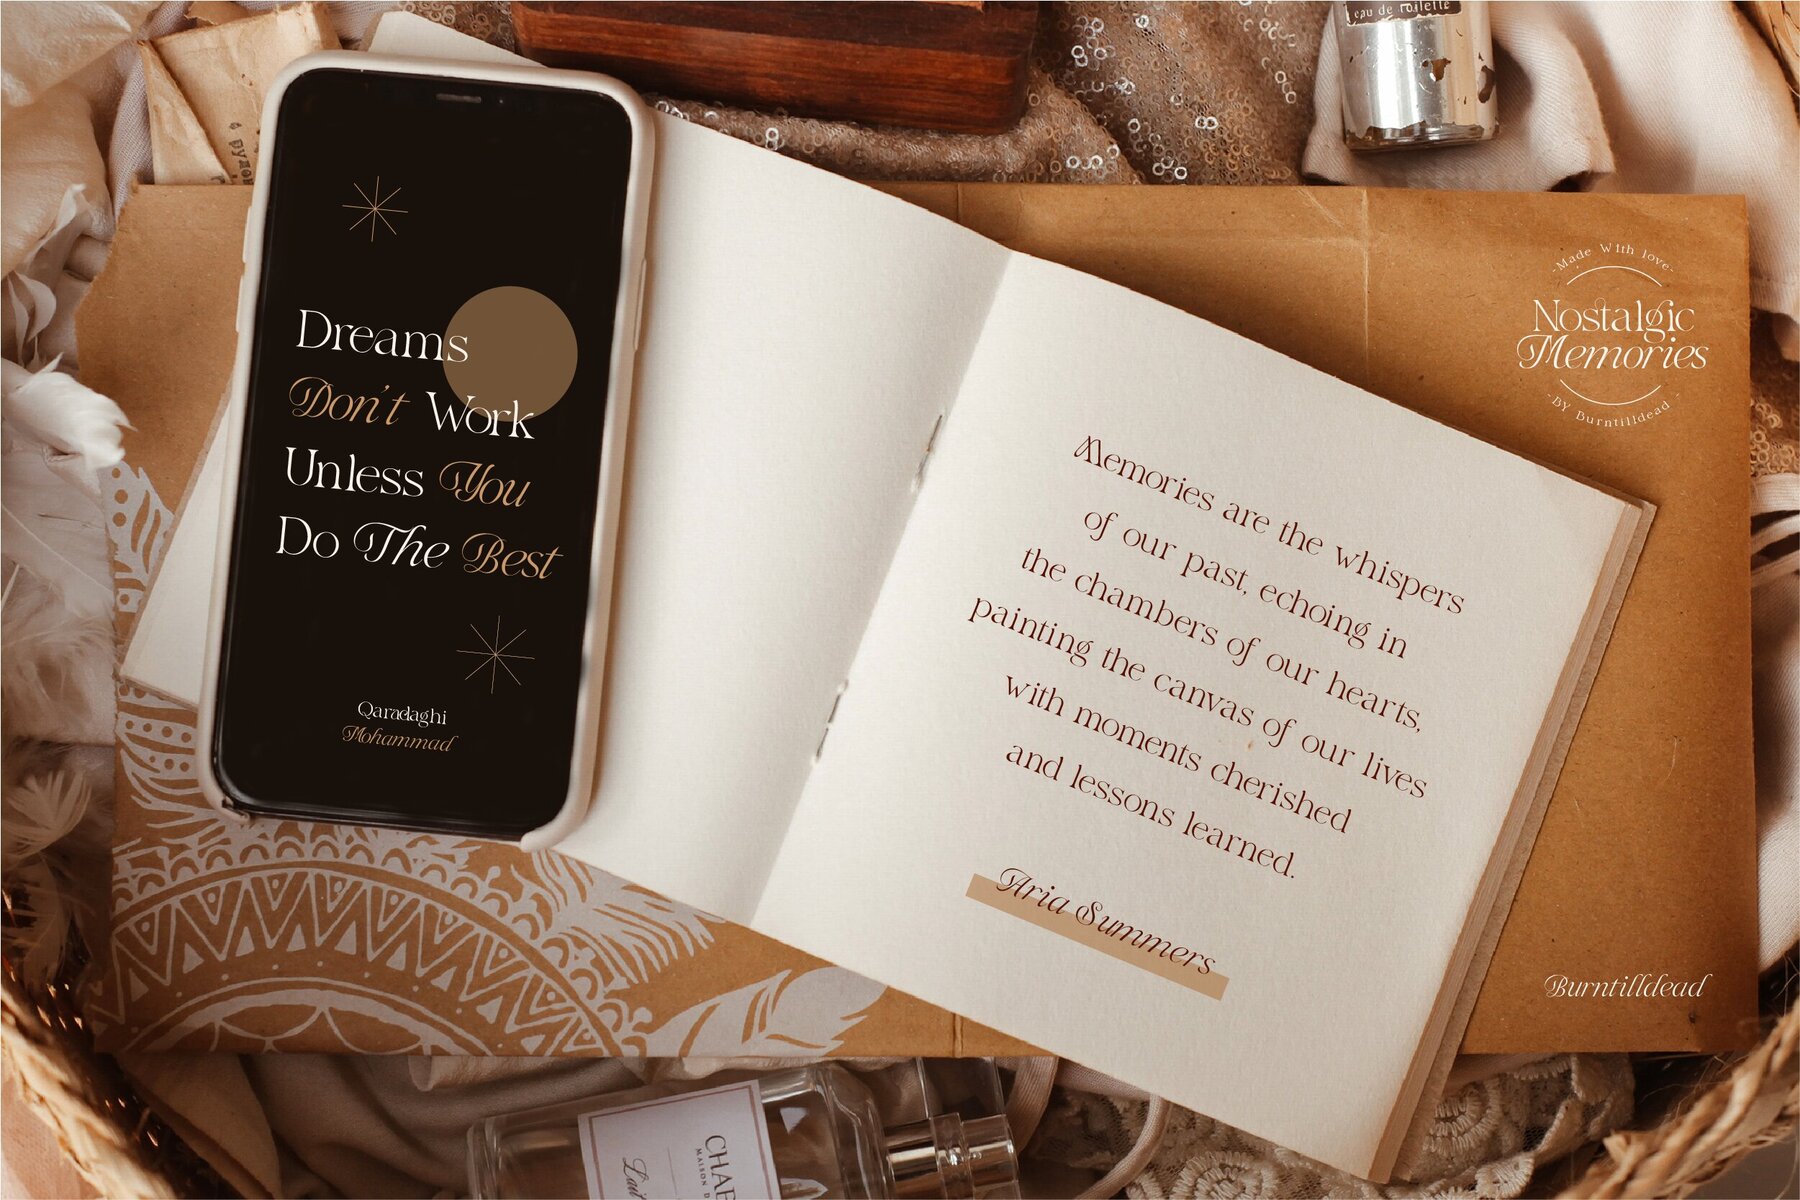 eau de toilette
Dreams
Don't Work
Unless You
Do The Best
Qaradaghi
Mohammad
Memories are the whispers
of our past, echoing in
the chambers of our hearts,
painting the canvas of our lives
with moments cherished
and lessons learned.
Aria Summers
-Made With love-
Nostalgic
Memories
-BY Burntilldead-
Burntilldead
MAISON D